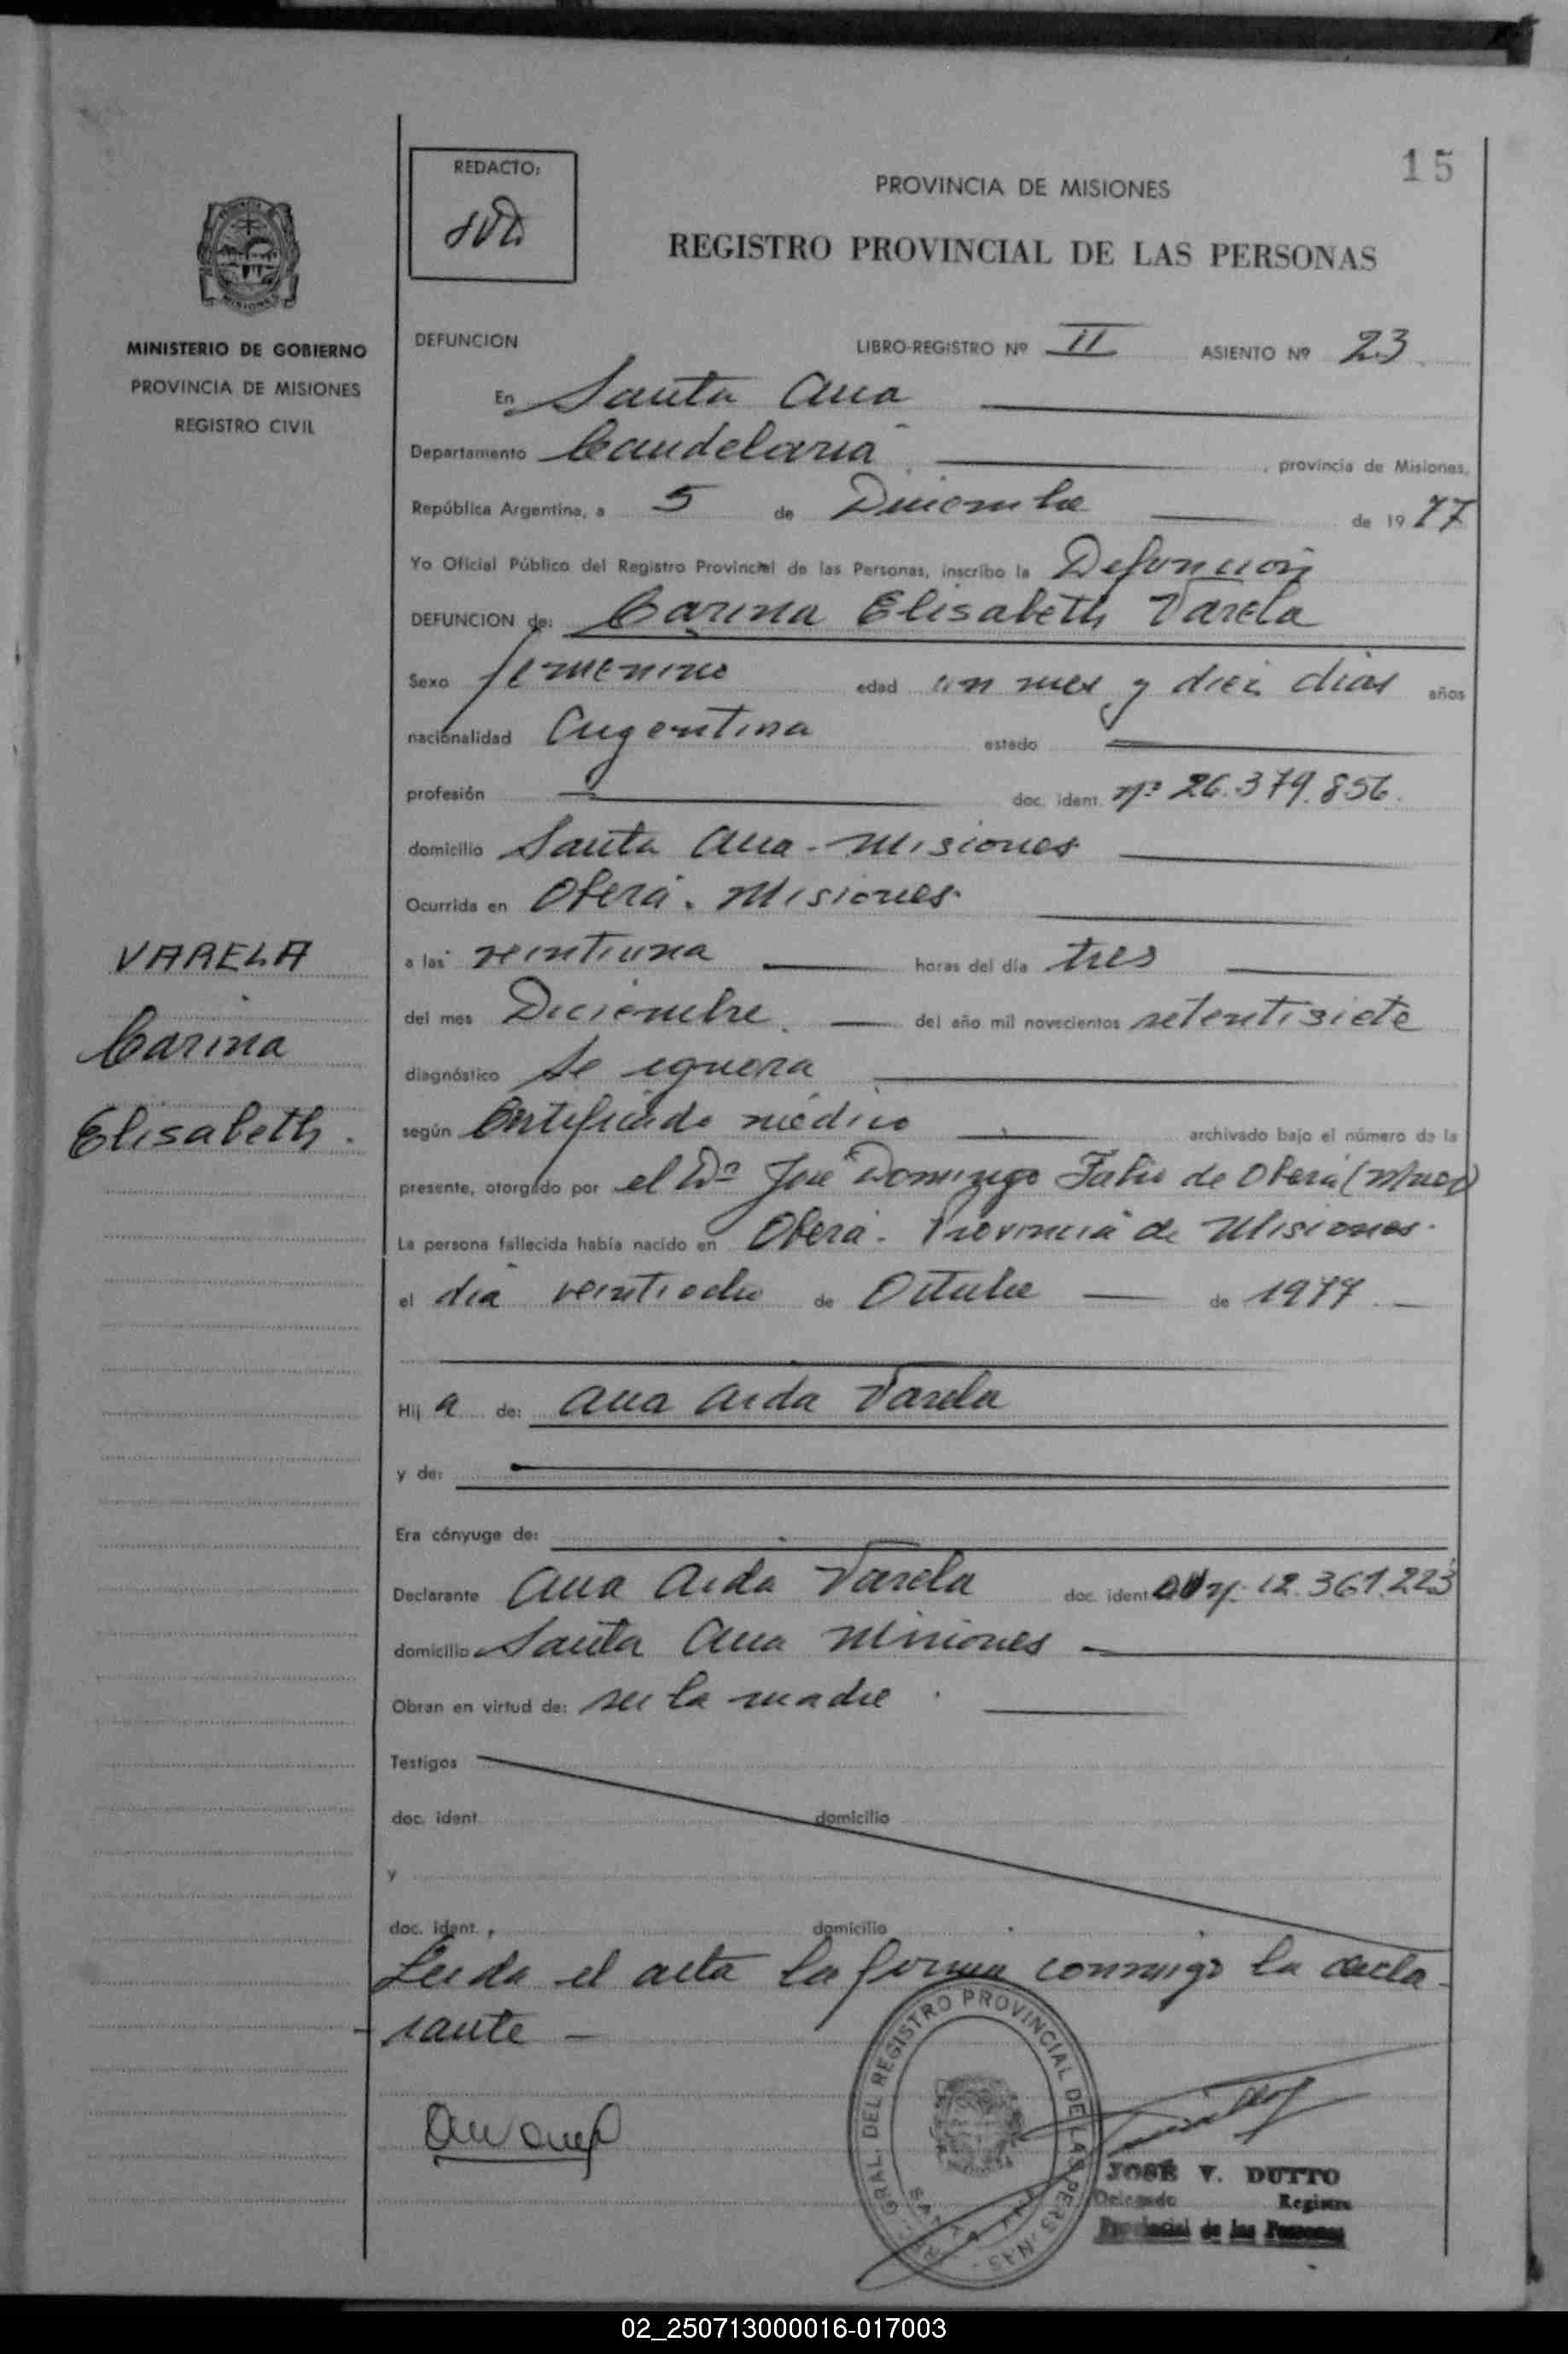 15
REDACTO:
PROVINCIA DE MISIONES
REGISTRO PROVINCIAL DE LAS PERSONAS
MINISTERIO DE GOBIERNO
PROVINCIA DE MISIONES
REGISTRO CIVIL
DEFUNCION LIBRO-REGISTRO Nº II ASIENTO Nº 23
En Santa Ana
Departamento Candelaria , provincia de Misiones,
República Argentina, a 5 de Diciembre de 1977
Yo Oficial Público del Registro Provincial de las Personas, inscribo la Defunción
DEFUNCION de: Carina Elisabeth Varela
Sexo femenino edad un mes y diez dias años
nacionalidad Argentina estado
profesión doc. ident. nº 26.379.856.
domicilio Santa Ana - Misiones
Ocurrida en Oberá. Misiones.
VARELA
Carina
Elisabeth.
a las veintiuna horas del día tres
del mes Diciembre. del año mil novecientos setentisiete
diagnóstico Se ignora
según Certificado médico archivado bajo el número de la
presente, otorgado por el Dr. José Domingo Fabio de Oberá
La persona fallecida había nacido en Oberá. Provincia de Misiones.
el dia veintiocho de Octubre de 1977.
Hij a de: Ana Aida Varela
y de:
Era cónyuge de:
Declarante Ana Aida Varela doc. ident. 12.361.223
domicilio Santa Ana Misiones
Obran en virtud de: ser la madre.
Testigos
doc. ident. domicilio
y
doc. ident. domicilio
Leida el acta la firma conmigo la decla-
rante
GRAL. DEL REGISTRO PROVINCIAL DE LAS PERSONAS
JOSÉ V. DUTTO
Delegado Registro
Provincial de las Personas
02_250713000016-017003